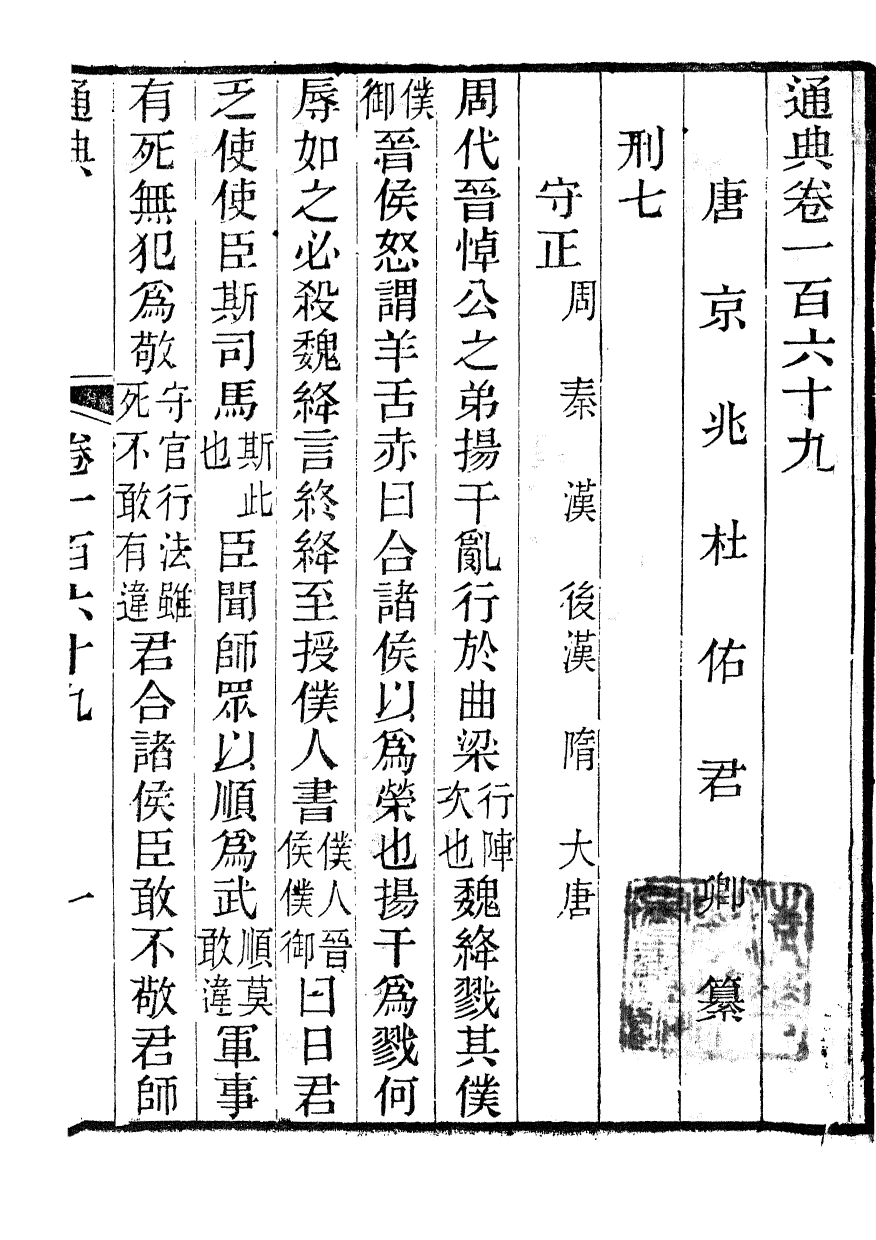 通典卷一百六十九
唐京兆杜佑君卿纂
刑七
守正周秦漢後漢隋大唐
周代晉悼公之弟揚干亂行於曲梁行陣次也魏絳戮其僕
僕御晉侯怒謂羊舌赤曰合諸侯以爲榮也揚干爲戮何
辱如之必殺魏絳言終絳至授僕人書僕人晉侯僕御曰日君
乏使使臣斯司馬斯此也臣聞師眾以順爲武順莫敢違軍事
有死無犯爲敬守官行法雖死不敢有違君合諸侯臣敢不敬君師
通典
卷一百六十九
一